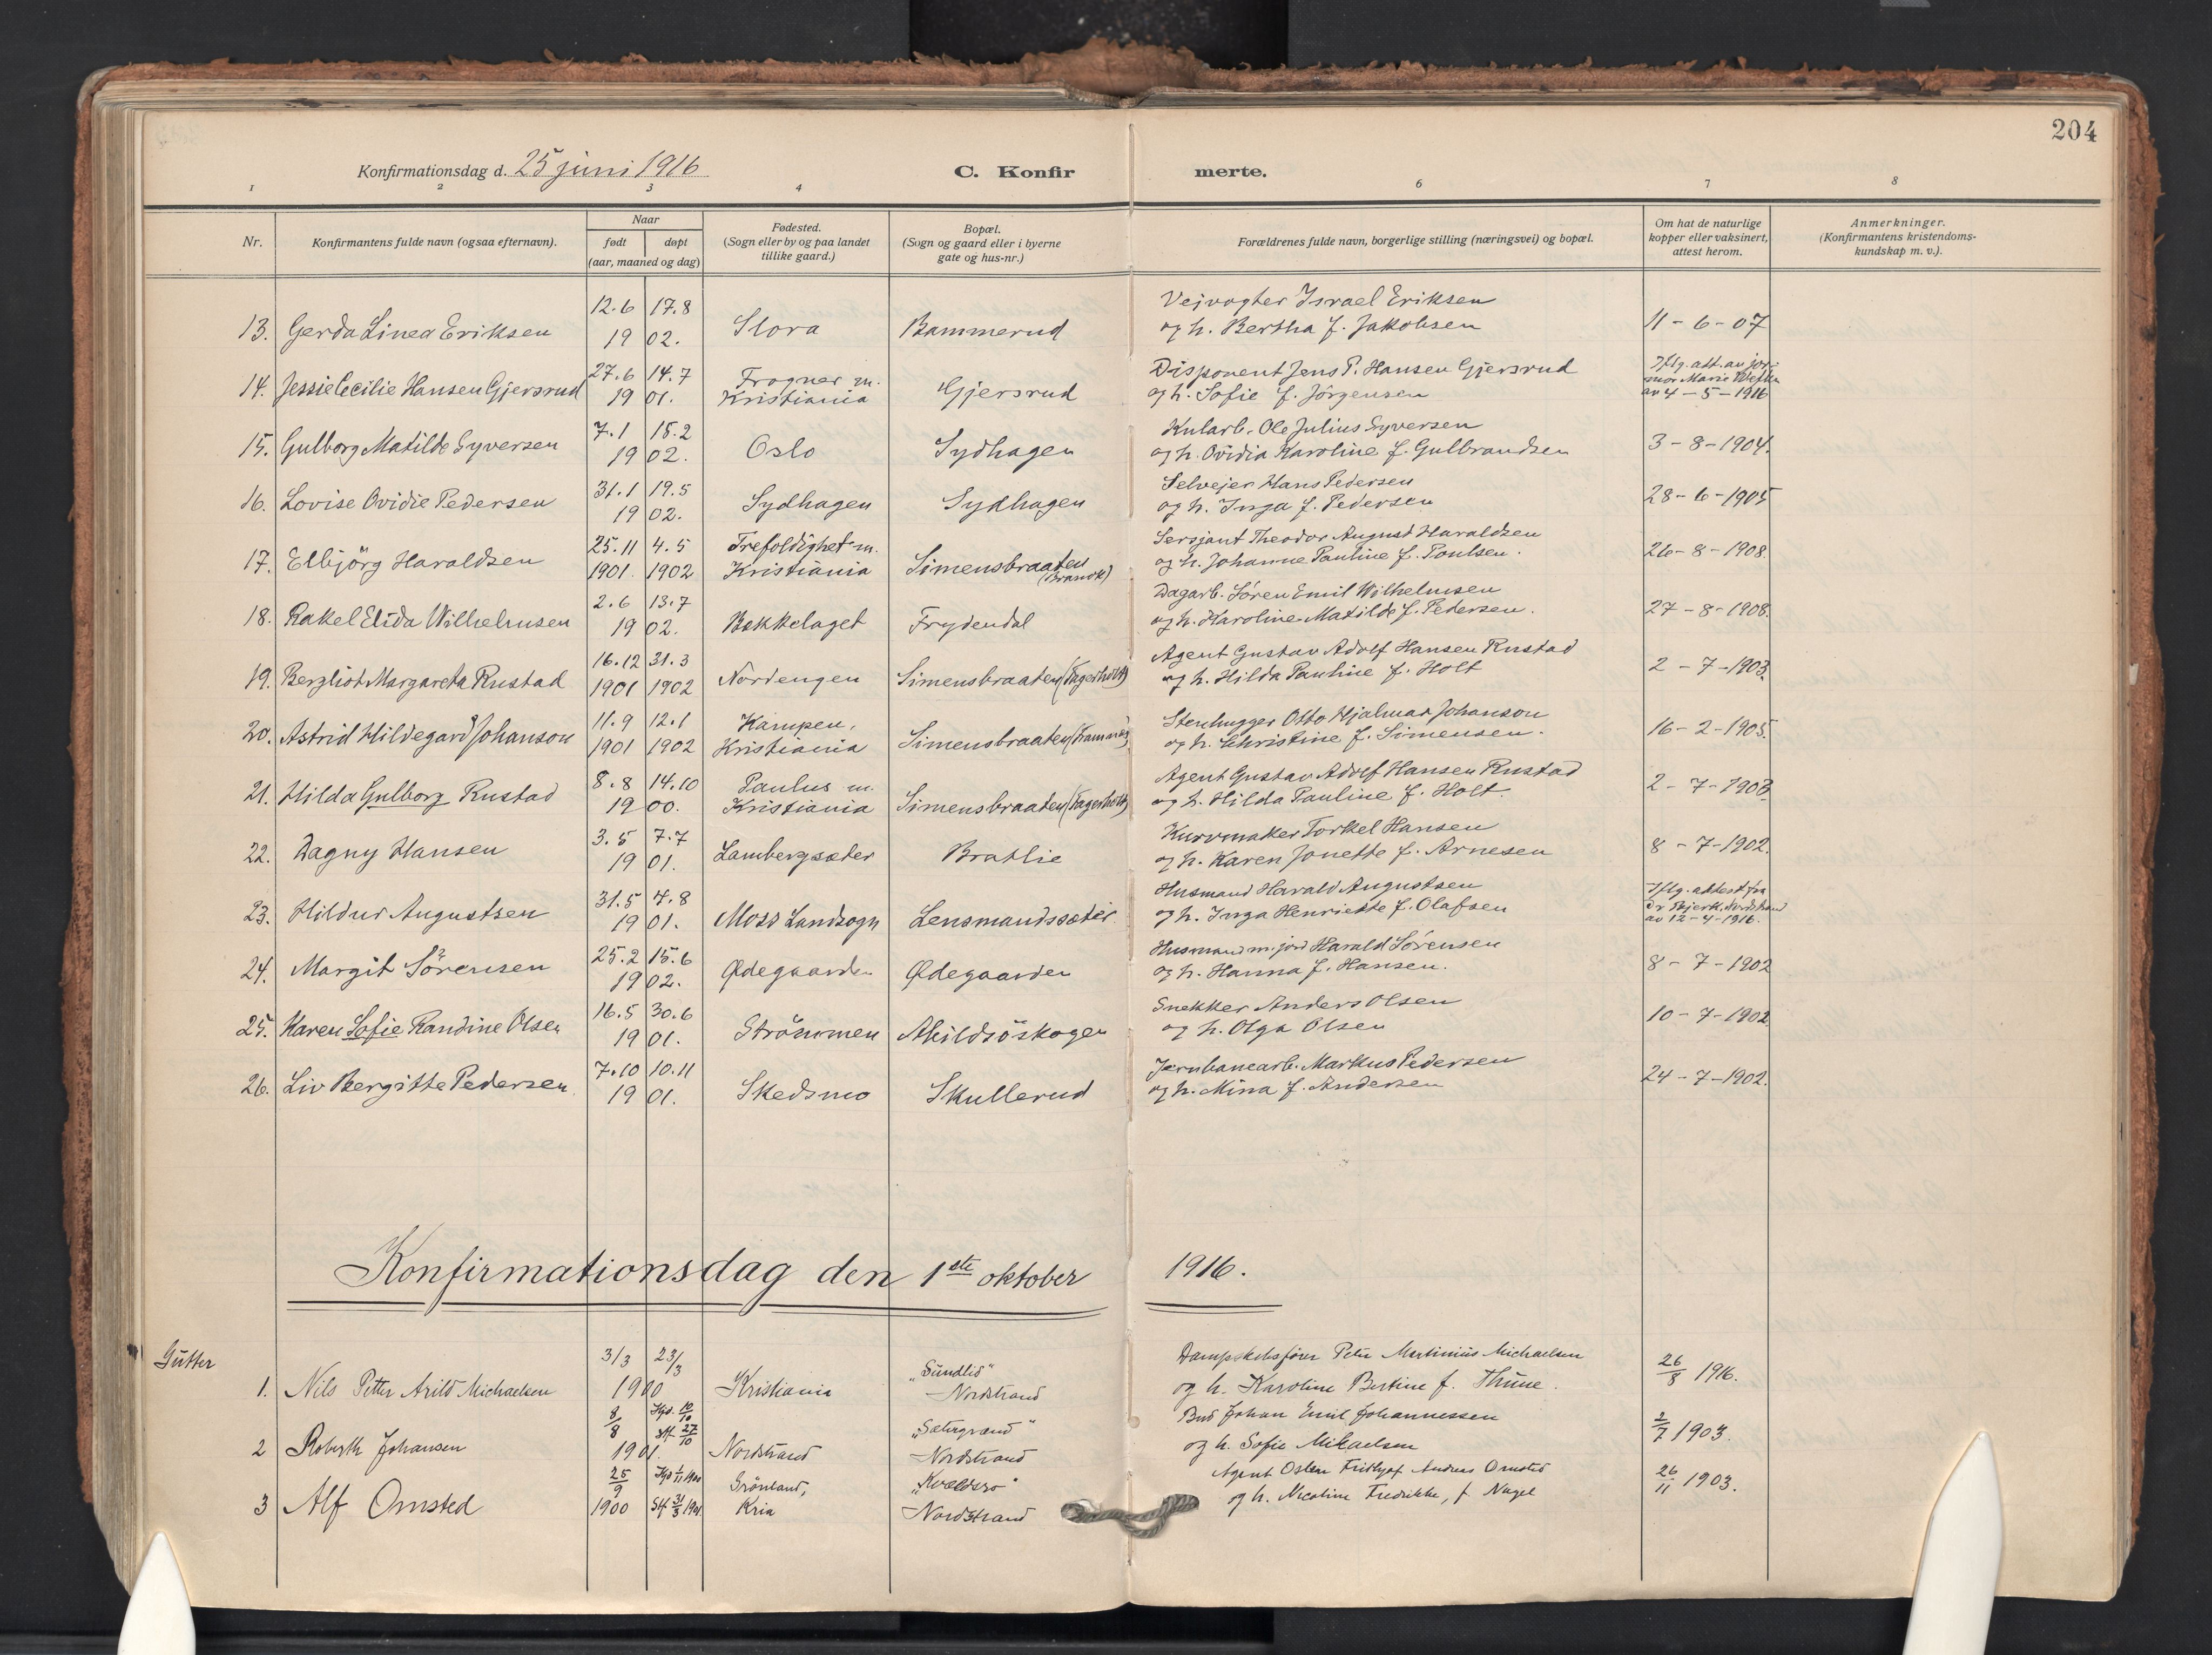 204
Konfirmationsdag d. 25 juni 1916 C. Konfir merte.
1 2 3 4 6 7 8
Nr. Konfirmantens fulde navn (ogsaa efternavn). Naar født døpt (aar, maaned og dag) Fødested. (Sogn eller by og paa landet tillike gaard.) Bopæl. (Sogn og gaard eller i byerne gate og hus-nr.) Forældrenes fulde navn, borgerlige stilling (næringsvei) og bopæl. Om hat de naturlige kopper eller vaksinert, attest herom. Anmerkninger. (Konfirmantens kristendoms-kundskap m. v.).
12.6 17.8 Veivogter Israel Eriksen
13. Gerda Linea Eriksen 19 02. Slora Bammerud og h. Bertha f. Jakobsen 11-6-07
27.6 14.7 Frogner m. Disponent Jens P. Hansen Gjersrud Iflg. att. av jor-
14. Jessie Cecilie Hansen Gjersrud 19 01. Kristiania Gjersrud og h. Sofie f. Jörgensen mor Marie
av 4-5-1916
7.1 15.2 Kularb. Ole Julius Syversen
15. Gulborg Matilde Syversen 19 02. Oslo Sydhagen og h. Ovidia Karoline f. Gulbrandsen 3-8-1904.
31.1 19.5 Selveier Hans Pedersen
16. Lovise Ovidie Pedersen 19 02. Sydhagen Sydhagen og h. Inga f. Pedersen 28-6-1905
25.11 4.5 Trefoldighet m. Sersjant Theodor August Haraldsen
17. Elbjörg Haraldsen 1901. 1902 Kristiania Simensbraaten og h. Johanne Pauline f. Poulsen. 26-8-1908.
2.6 13.7 Dagarb. Søren Emil Wilhelmsen
18. Rakel Elida Wilhelmsen 19 02. Bekkelaget Frydendal og h. Karoline Matilde f. Pedersen. 27-8-1908.
16.12 31.3 Agent Gustav Adolf Hansen Rustad
19. Bergliot Margareta Rustad 1901 1902 Nordengen Simensbraaten (Fagerholt) og h. Hilda Pauline f. Holt 2-7-1903.
11.9 12.1 Kampen, Stenhugger Otto Hjalmar Johanson
20. Astrid Hildegard Johanson 1901 1902 Kristiania Simensbraaten og h. Christine f. Simensen. 16-2-1905.
8.8 14.10 Paulus m. Agent Gustav Adolf Hansen Rustad
21. Hilda Gulborg Rustad 19 00. Kristiania Simensbraaten (Fagerholt) og h. Hilda Pauline f. Holt. 2-7-1903.
3.5 7.7 Kurvmaker Torkel Hansen
22. Dagny Hansen 19 01. Lambergsæter Bratlie og h. Karen Jonette f. Arnesen 8-7-1902.
31.5 4.8 Husmand Harald Augustsen Iflg. attest fra
23. Hildur Augustsen 19 01. Moss Landsogn Lensmandssæter og h. Inga Henriette f. Olafsen Dr Bjerk, Nordstrand
av 12-4-1916.
25.2 15.6 Husmand m. jord Harald Sörensen
24. Margit Sörensen 19 02. Ødegaarden Ødegaarden og h. Hanna f. Hansen. 8-7-1902
16.5 30.6 Snekker Anders Olsen
25. Karen Sofie Randine Olsen 19 01. Strömmen Abildsöskogen og h. Olga Olsen 10-7-1902.
7.10 10.11 Jernbanearb. Markus Pedersen
26. Liv Bergitte Pedersen 19 01. Skedsmo Skullerud og h. Mina f. Andersen 24-7-1902.
Konfirmationsdag den 1ste oktober 1916.
Gutter 3/3 23/3 „Sundlid“ Dampskibsfører Peter Martinius Michaelsen
1. Nils Petter Arild Michaelsen 1900 Kristiania Nordstrand og h. Karoline Bertine f. Thune. 26/8 1916.
8/8 Hjd. 10/10 Stf 27/10 „Sætergrænd“ Bud Johan Emil Johannessen
2 Roberth Johansen 1901. Nordstrand Nordstrand og h. Sofie Mikaelsen 2/7 1903.
25/9 Hjd 1/11 1900 Grönland, „Kveldsro“ Agent Osten Fridtjof Andreas Omsted
3 Alf Omsted 1900 Stf 31/3 1901. Kria Nordstrand og h. Nicoline Fredrikke, f Nagel 26/11 1903.